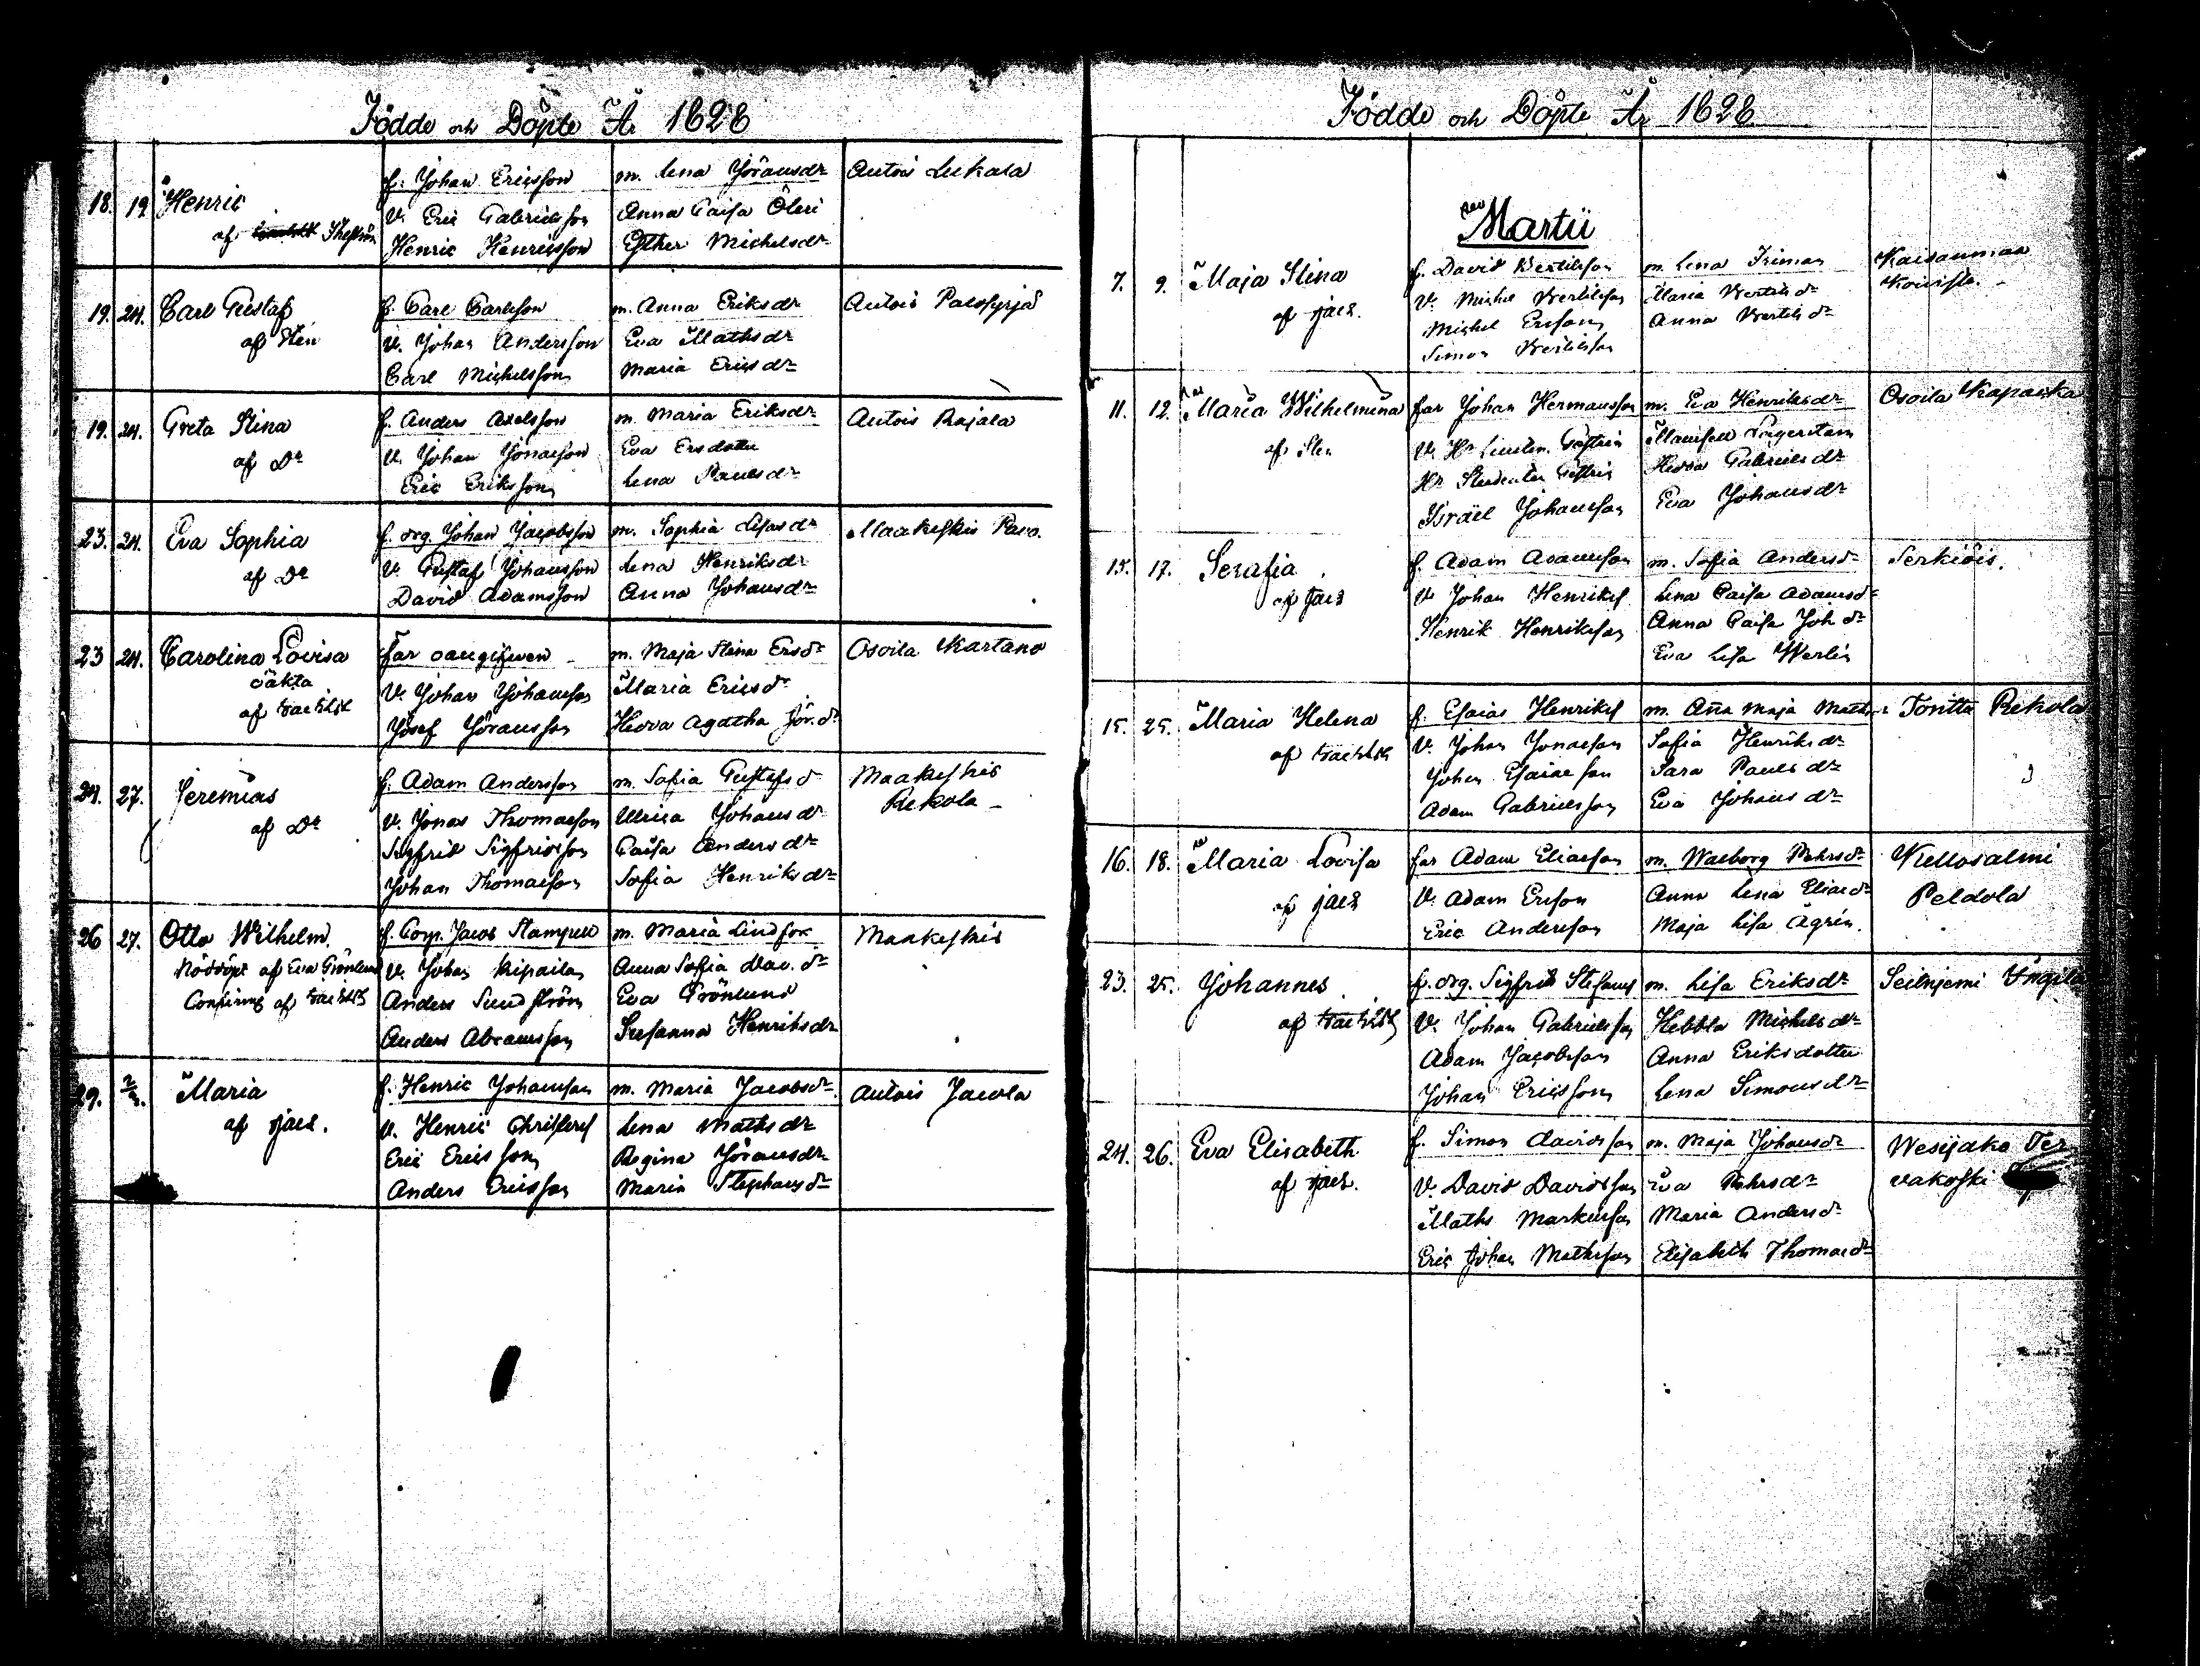 Födde och Döpte År 1828
18. 19 Henric
af Thesleff
f. Johan Ericsson
V. Eric Gabrielsson
Henric Henricsson
m. Lena Jöransdr
Anna Caisa Öleri
Esther Michelsdr
Autois Lukala
19. 24. Carl Gustaf
af Sten
f. Carl Carlsson
V. Johan Andersson
Carl Michelsson
m. Anna Eriksdr
Eva Mathsdr
Maria Ericsdr
Autois Palopyrjä
19. 24. Greta Stina
af Do
f. Anders Axelsson
V. Johan Jonasson
Eric Eriksson
m. Maria Eriksdr
Eva Ersdotter
Lena Paulsdr
Autois Rajala
23. 24. Eva Sophia
af Do
f. drg. Johan Jacobsson
V. Gustaf Johansson
David Adamsson
m. Sophia Esasdr
Lena Henriksdr
Anna Johansdr
Maakeskis Pavo.
23 24. Carolina Lovisa
oäkta
af
Far oangifven
V. Johan Johansson
Josef Jöransson
m. Maja Stina Ersdr
Maria Ericsdr
Hedda Agatha Jör.dr
Osoila Kartano
24. 27. Jeremias
af Do
f. Adam Andersson
V. Jonas Thomasson
Sigfrid Sigfridsson
Johan Thomasson
m. Sofia Gustafsdr
Ulrica Johansdr
Caisa Andersdr
Sofia Henriksdr
Maakeskis
Rekola
26 27. Otto Wilhelm.
Nöddöpt af Eva Grönlund
Confirm. af
f. Corp. Jacob Stampell
V. Johan Kipailas
Anders Sundström
Anders Abramsson
m. Maria Lindfors
Anna Sofia Dav. dr
Eva Grönlund
Susanna Henriksdr
Maakeskis
29. 2/3. Maria
af sjael.
f. Henric Johansson
V. Henric Christers
Eric Ericsson
Anders Ericsson
m. Maria Jacobsdr
Lena Mathsdr
Regina Jöransdr
Maria Stephansdr
Autois Jacola
Födde och Döpte År 1828
Martii
7. 9. Maja Stina
af sjael.
f. David Bertilsson
V. Michel Bertilsson
Michel Ersson
Simon Bertilsson
m. Lena Friman
Maria Bertilsdr
Anna Bertilsdr
Kaisanmaa
Koivisto.
11. 12. Maria Wilhelmina
af Sten
far Johan Hermansson
V. Hr Lieuten.
Hr Studenten
Israël Johansson
m. Eva Henriksdr
Mamsell Fagerstam
Hedda Gabrielsdr
Eva Johansdr
Osoila Kapakka
15. 17. Serafia
af sjael
f. Adam Adamsson
V. Johan Henriks
Henrik Henriksson
m. Sofia Andersdr
Lena Caisa Adamsdr
Anna Caisa Joh.dr
Eva Lisa Werlin
Serkiöis.
15. 25. Maria Helena
af
f. Esaias Henriks
V. Johan Jonasson
Johan Esaiasson
Adam Gabrielsson
m. Anna Maja Mathsdr
Sofia Henriksdr
Sara Paulsdr
Eva Johansdr
Toritta Rekola
16. 18. Maria Lovisa
af sjael
far Adam Eliasson
V. Adam Ersson
Eric Andersson
m. Walborg Pehrsdr
Anna Lena Eliasdr
Maja Lisa Ågrén.
Kellosalmi
Peldola
23. 25. Johannes
af
f. drg. Sigfrid Stefans
V. Johan Gabrielsson
Adam Jacobsson
Johan Ericsson
m. Lisa Eriksdr
Hebbla Michelsdr
Anna Eriksdotter
Lena Simonsdr
Seitniemi Yngila
24. 26. Eva Elisabeth
af sjael.
f. Simon Davidsson
V. David Davidsson
Maths Markusson
Eric Johan Mathsson
m. Maja Johansdr
Eva Pehrsdr
Maria Andersdr
Elisabeth Thomasdr
Wesijako Ter
vakoski